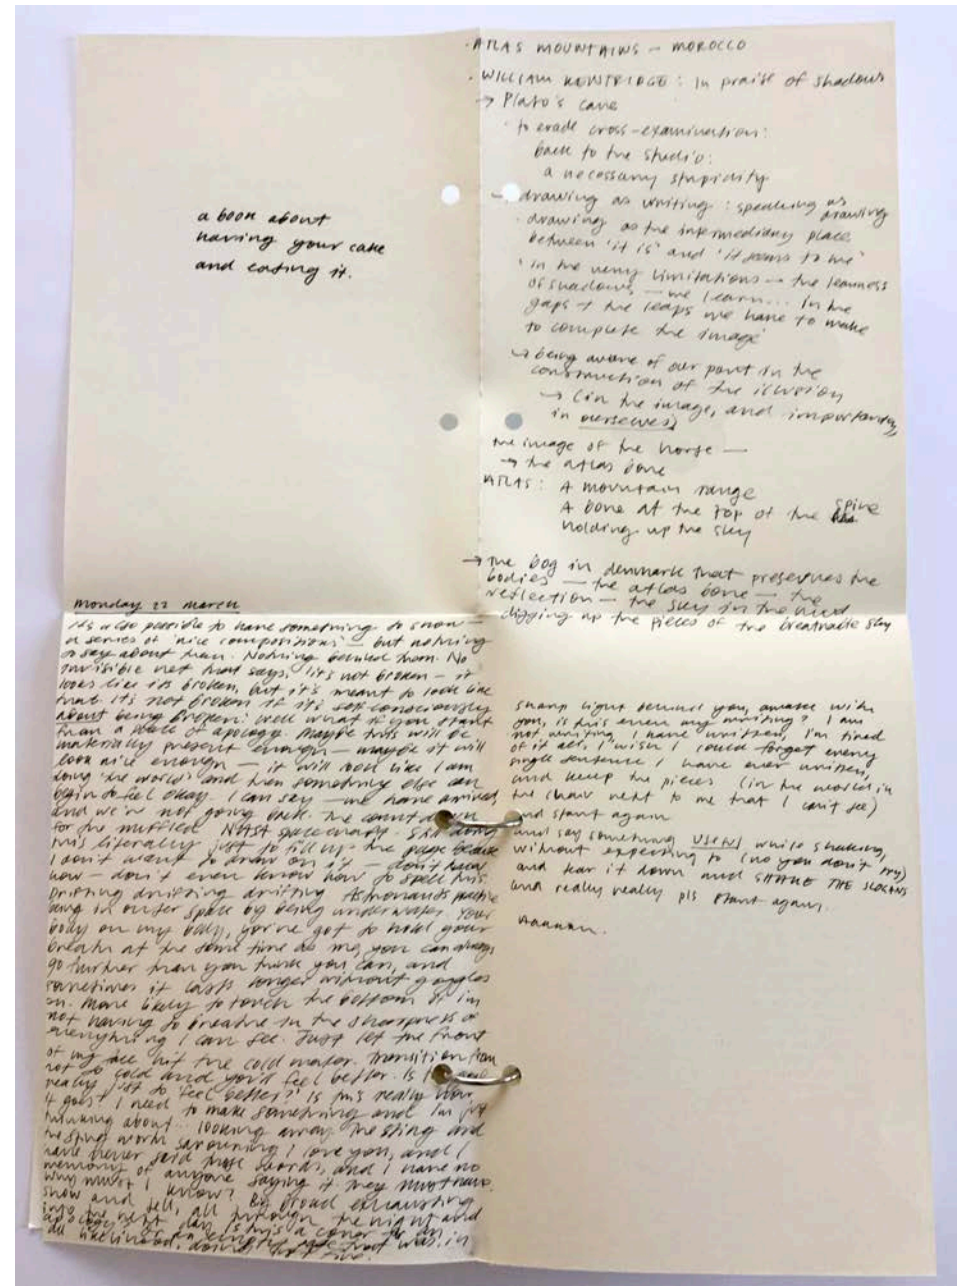 a book about
having your cake
and eating it.
· ATLAS MOUNTAINS — MOROCCO
· WILLIAM KENTRIDGE : In praise of shadows
→ Plato's cave
· to evade cross-examination:
back to the studio:
a necessary stupidity
drawing as writing : speaking as drawing
· drawing as the intermediary place
between 'it is' and 'it seems to me'
· in the very limitations — the leanness
of shadows — we learn... in the
gaps + the leaps we have to make
to complete the image
↳ being aware of our part in the
construction of the illusion
→ (in the image, and importantly,
in ourselves)
the image of the horse —
→ the atlas bone
ATLAS: A mountain range
A bone at the top of the spine
holding up the sky
→ The bog in denmark that preserves the
bodies — the atlas bone — the
reflection — the sky in the mud
digging up the pieces of the breathable sky
monday 22 march
It's also possible to have something to show —
a series of 'nice compositions' — but nothing
to say about them. Nothing behind them. No
invisible net that says, 'it's not broken — it
looks like it's broken, but it's meant to look like
that. It's not broken if it's self-consciously
about being broken.' Well what if you start
from a place of apology. Maybe this will be
materially present enough — maybe it will
look nice enough — it will look like I am
doing 'the world' and then something else can
begin to feel okay. I can say — we have arrived,
and we're not going back. The count down
for the muffled NASA spacecraft. Still doing
this literally just to fill up the page because
I don't want to draw on it — don't know
how — don't even know how to spell this.
Drifting drifting drifting. Astronauts
in outer space by being underwater. Your
body on my body, you've got to hold your
breath at the same time as me, you can always
go further than you think you can, and
sometimes it lasts longer without goggles
on. More likely to touch the bottom if I'm
not having to breathe in the sharpness of
everything I can see. Just let the front
of my face hit the cold water. Transition from
hot to cold and you'll feel better. Is
really just to 'feel better?' Is this really how
it goes? I need to make something and I'm just
thinking about... looking away. The sting and
the sting worth savouring I love you, and I
have never said those words, and I have no
memory of anyone saying it they must have.
Why must I know? Big broad exhausting
show and tell, all through the night and
into the next day. Is this a cover for an
apology
all likelihood, doing
sharp light behind you, awake with
you, is this even my writing? I am
not writing I have written, I'm tired
of it all, I wish I could forget every
single sentence I have ever written,
and keep the pieces (in the world in
the chair next to me that I can't see)
and start again
and say something USEFUL while shaking,
without expecting to (no you don't try)
and tear it down and SHAKE THE SLOGANS
and really really pls start again.
Aaaaah.